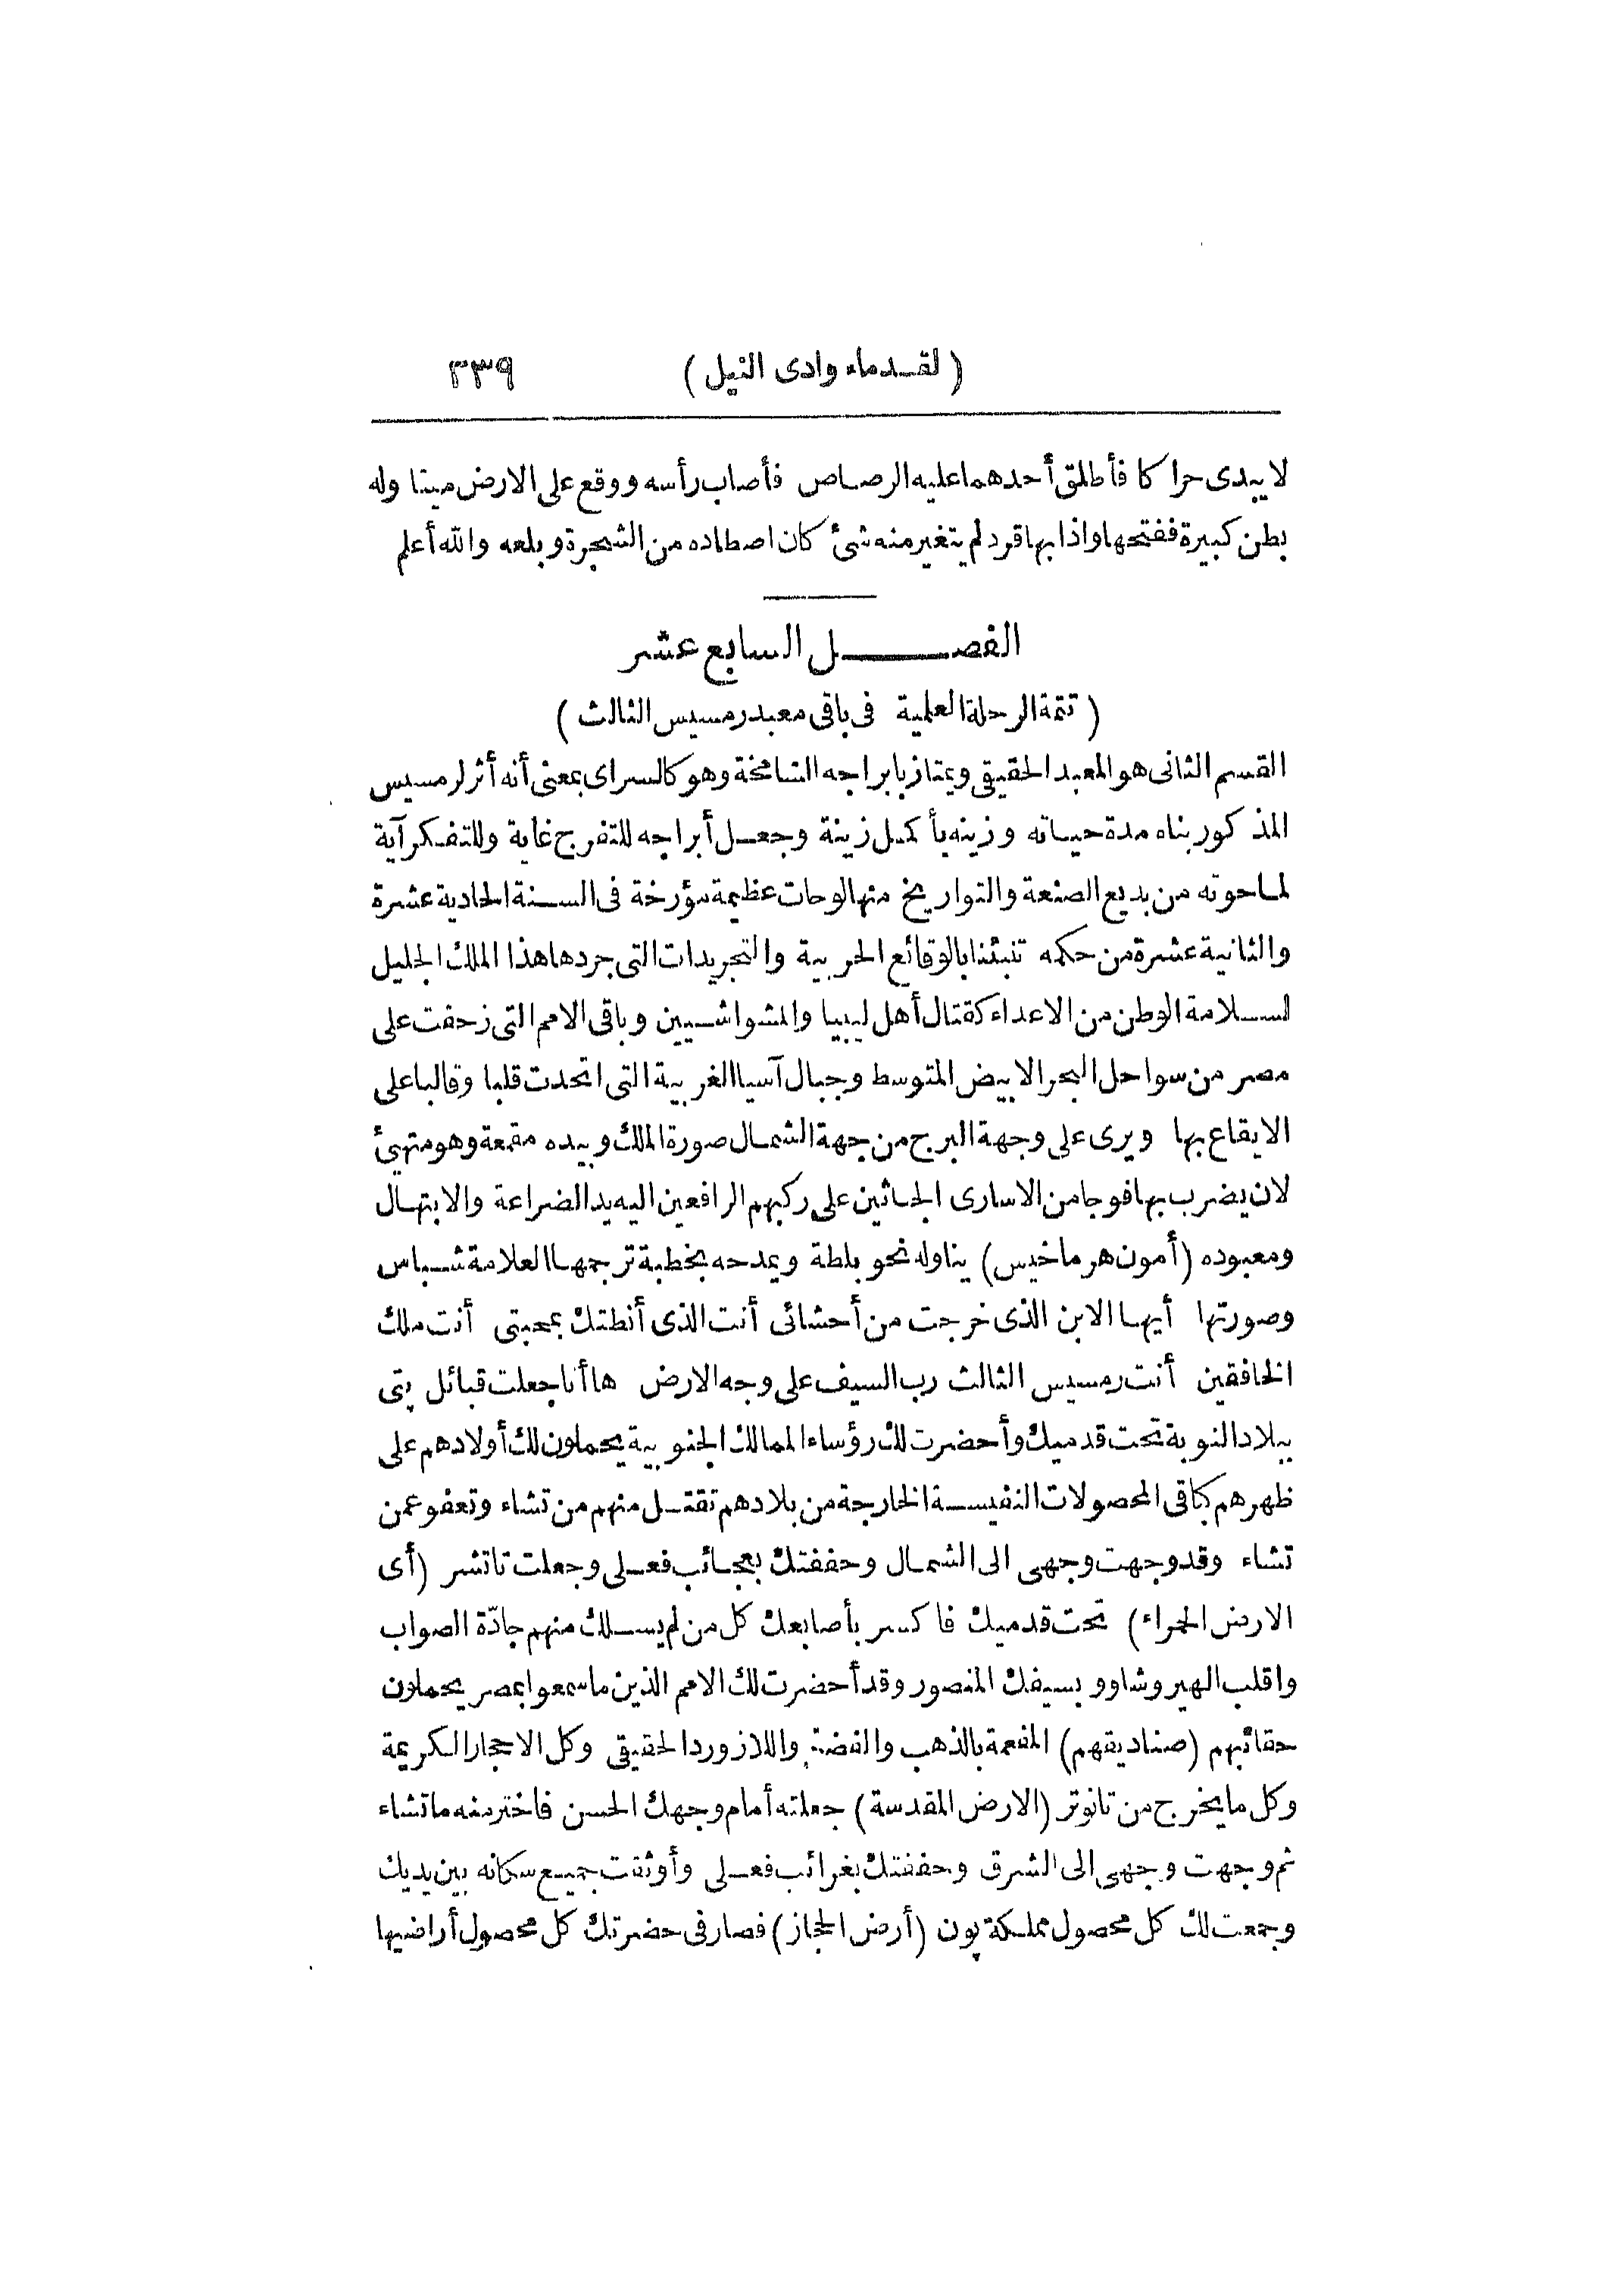 (لقدماء وادى النيل) ٣٣٩
لا يبدى حراكا فأطلق أحدهما عليه الرصاص فأصاب رأسه ووقع على الارض ميتا وله
بطن كبيرة ففتحها واذا بها قرد لم يتغير منه شئ كان اصطاده من الشجرة وبلعه والله أعلم
الفصل السابع عشر
(تتمة الرحلة العلمية فى باقى معبد رمسيس الثالث)
القسم الثانى هو المعبد الحقيقى ويمتاز بابراجه الشامخة وهو كالسراى بمعنى أنه أثر لرمسيس
المذكور بناه مدة حياته وزينه بأكمل زينة وجعل أبراجه للتفرج غاية وللتفكر آية
لما حوته من بديع الصنعة والتواريخ منها لوحات عظيمة مؤرخة فى السنة الحادية عشرة
والثانية عشرة من حكمه تنبئنا بالوقائع الحربية والتجريدات التى جردها هذا الملك الجليل
لسلامة الوطن من الاعداء كقتال أهل ليبيا والمشواشيين وباقى الامم التى زحفت على
مصر من سواحل البحر الابيض المتوسط وجبال آسيا الغربية التى اتحدت قلبا وقالبا على
الايقاع بها ويرى على وجهة البرج من جهة الشمال صورة الملك وبيده مقمعة وهو متهيئ
لان يضرب بها فوجا من الاسارى الجاثين على ركبهم الرافعين اليه يد الضراعة والابتهال
ومعبوده (أمون هرماخيس) يناوله نحو بلطة ويمدحه بخطبة ترجمها العلامة شباس
وصورتها أيها الابن الذى خرجت من أحشائى أنت الذى أنطتك بمحبتى أنت ملك
الخافقين أنت رمسيس الثالث رب السيف على وجه الارض ها أنا جعلت قبائل پتى
ببلاد النوبة تحت قدميك وأحضرت لك رؤساء الممالك الجنوبية يحملون لك أولادهم على
ظهرهم كباقى المحصولات النفيسة الخارجة من بلادهم تقتل منهم من تشاء وتعفو عمن
تشاء وقد وجهت وجهى الى الشمال وحففتك بعجائب فعلى وجعلت تاتشر (أى
الارض الحمراء) تحت قدميك فاكسر بأصابعك كل من لم يسلك منهم جادّة الصواب
واقلب الهيروشاوو بسيفك المنصور وقد أحضرت لك الامم الذين ما سمعوا بمصر يحملون
حقائبهم (صناديقهم) المفعمة بالذهب والفضة واللازورد الحقيقى وكل الاحجار الكريمة
وكل ما يخرج من تانوتر (الارض المقدسة) جعلته أمام وجهك الحسن فاختر منه ما تشاء
ثم وجهت وجهى الى الشرق وحففتك بغرائب فعلى وأوثقت جميع سكانه بين يديك
وجمعت لك كل محصول مملكة پون (أرض الحجاز) فصار فى حضرتك كل محصول أراضيها